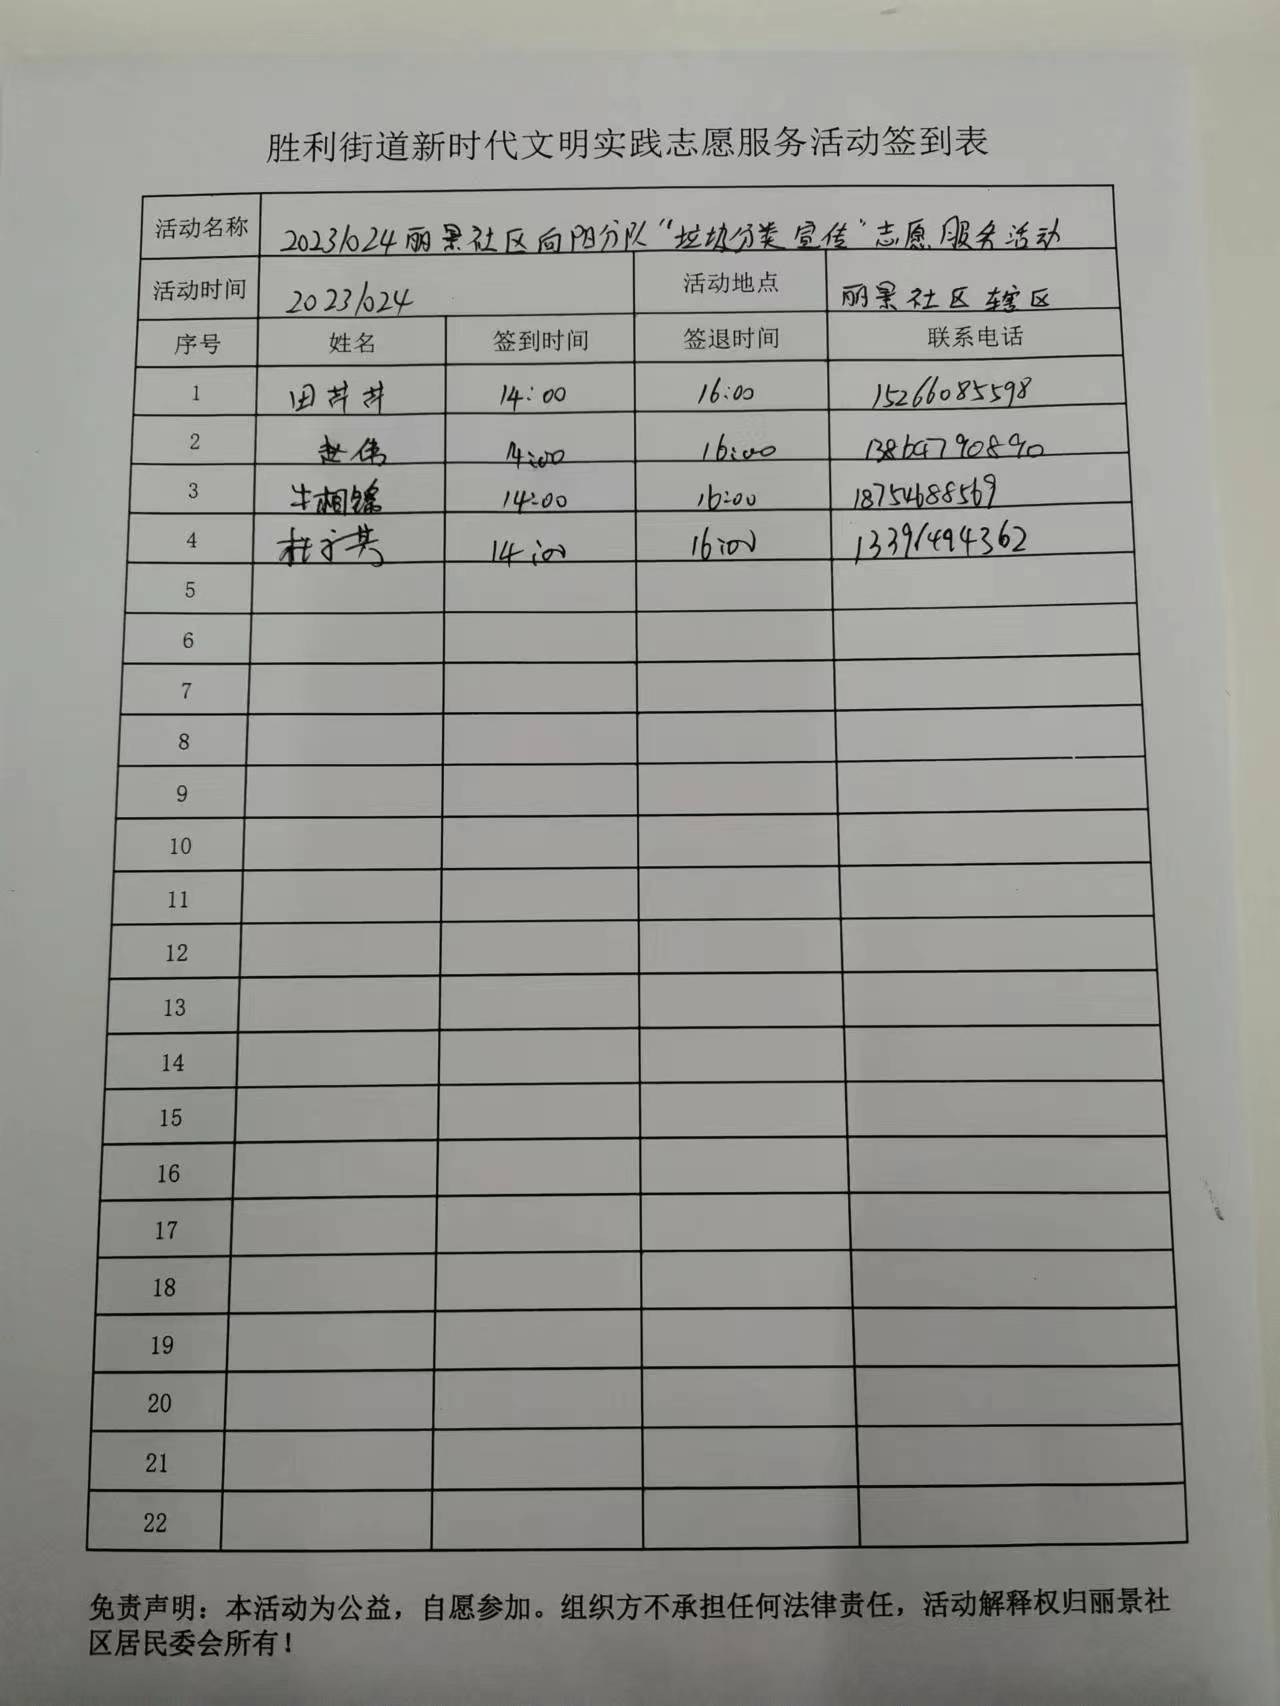 胜利街道新时代文明实践志愿服务活动签到表
活动名称 20231024丽景社区向阳分队“垃圾分类宣传”志愿服务活动
活动时间 20231024 活动地点 丽景社区辖区
序号 姓名 签到时间 签退时间 联系电话
1 田芹芹 14:00 16:00 15266085598
2 赵伟 14:00 16:00 13864790890
3 牛相锦 14:00 16:00 18754688569
4 杜 14:00 16:00 13391494362
5
6
7
8
9
10
11
12
13
14
15
16
17
18
19
20
21
22
免责声明：本活动为公益，自愿参加。组织方不承担任何法律责任，活动解释权归丽景社
区居民委会所有！